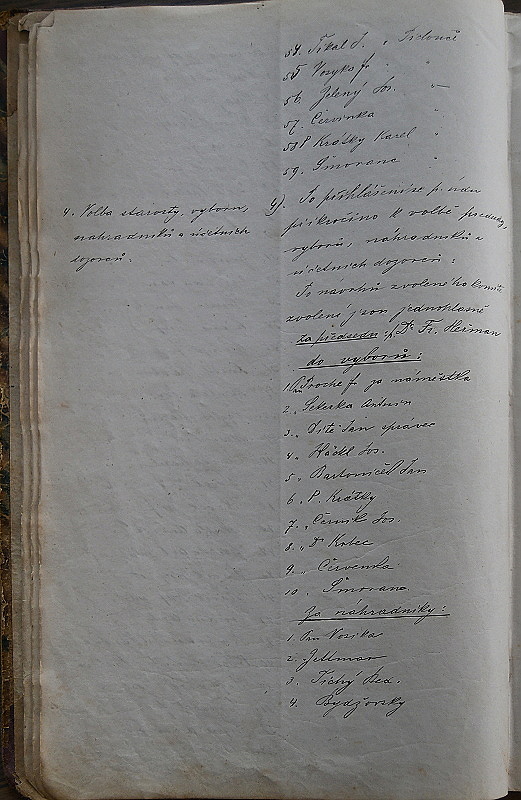 54. Tikal J. z Trlouče
55 Vosyka fr. "
56. Zelený Jos. "
57. Červinka "
58 P Krátky Karel "
59. Smorana "
4. Volba starosty, výboru,
náhradníků a účetních
dozorců.
4). Po přihlášeníse p. údů
přikročino k volbě předsedy,
výborů, náhradníků a
účetních dozorců:
Po návrhu zvoleného komité
zvoleni jsou jednohlasně
za předsedu: p. Dr Fr. Heřman
do výborů:
1. Proche fr. ja náměstka
2. Sekerka Antonín
3. " Dítě Jan správec
4 " Háckl Jos.
5 " Bartoníček Jan
6 " P. Krátky
7. " Černík Jos.
8. " Dr Krbec
9. " Červenka
10. Smorana.
Za náhradníky:
1. Pan Vosika
2. Jellman
3. Tichý Bed.
4. Bydžovsky